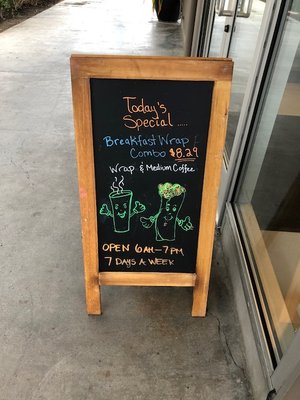 Today's
Special.....
Breakfast Wrap
Combo $8.29
Wrap & Medium Coffee
OPEN 6AM-7PM
7 DAYS A WEEK